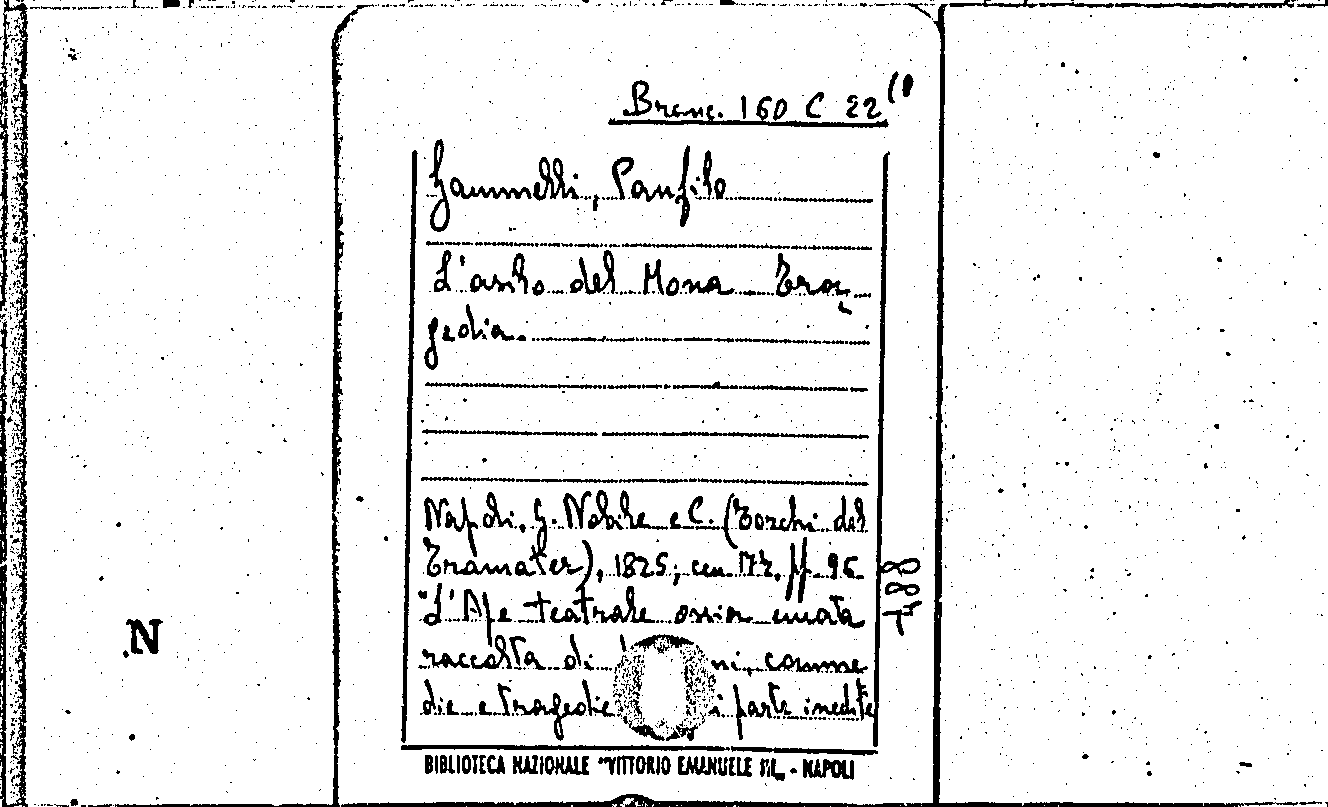 Branc. 160 C 22 (1
Giammelli, Panfilo
L'asilo del Mona Tra=
gedia.
Napoli, G. Nobile e C. (Torchi del
Tramater), 1825; cm 17½, pp. 96
"L'Ape teatrale ossia
raccolta di ni, comme
die e tragedie i parte inedite
BIBLIOTECA NAZIONALE "VITTORIO EMANUELE III„ - NAPOLI
N